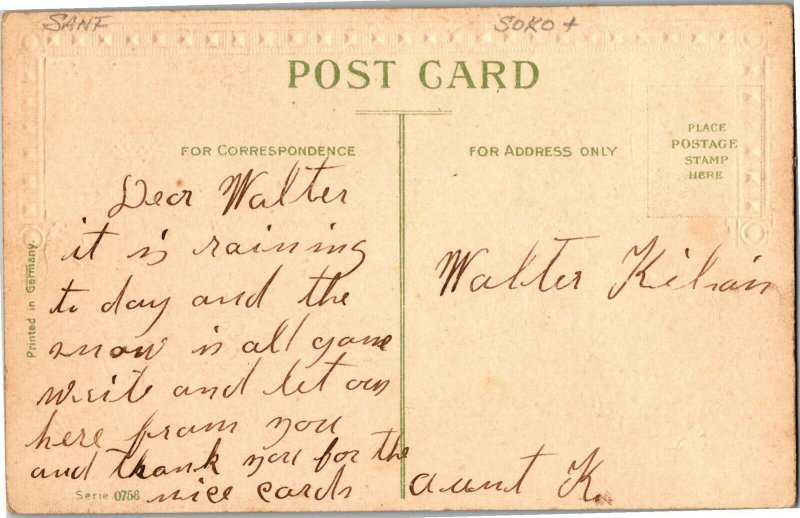 SANF
SOKO +
POST CARD
FOR CORRESPONDENCE
FOR ADDRESS ONLY
PLACE
POSTAGE
STAMP
HERE
Dear Walter
it is raining
to day and the
snow is all gone
write and let ous
here from you
and thank you for the
nice cards
Walter Kilian
aunt K.
Printed in Germany.
Serie 0758